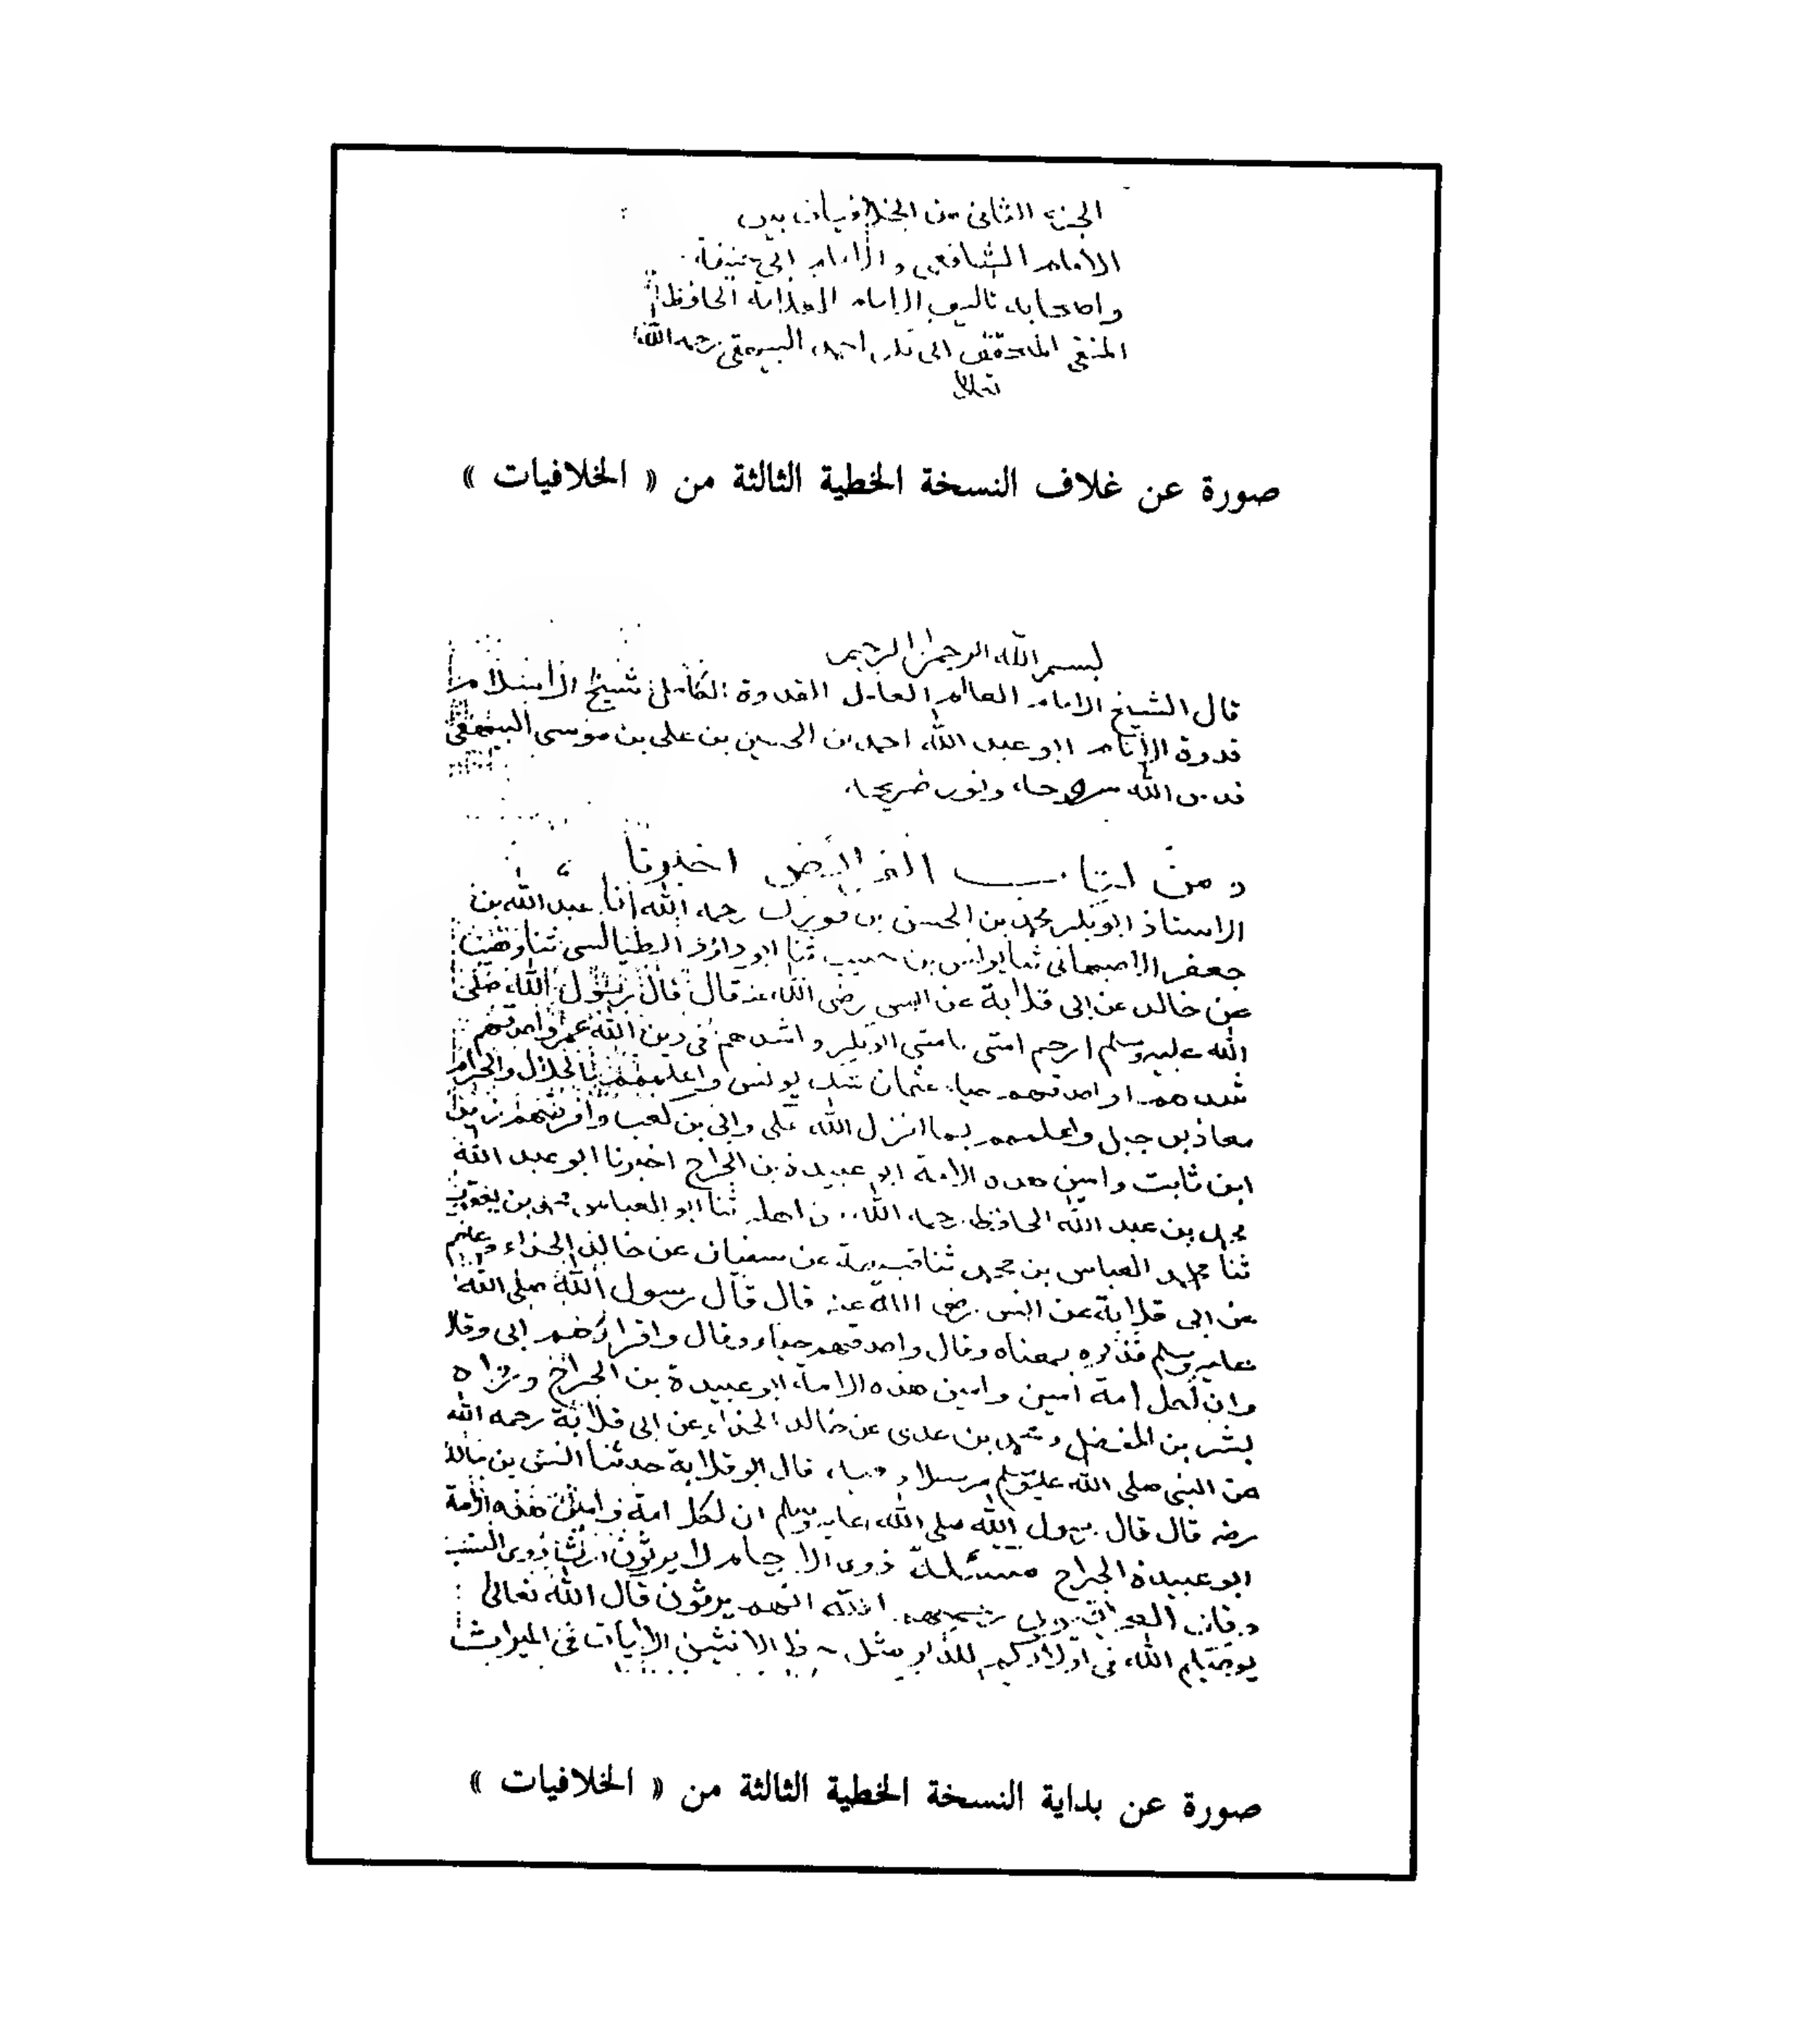 الجزء الثانى من الخلافيات بين
الامام الشافعي والامام ابي حنيفة
واصحابه تاليف الامام العلامة الحافظ
المتقي المحقق ابى بكر احمد البيهقى رحمه الله
تعالى
صورة عن غلاف النسخة الخطية الثالثة من « الخلافيات »
بسم الله الرحمن الرحيم
قال الشيخ الامام العالم العامل القدوة الكامل شيخ الاسلام
قدوة الانام ابو عبد الله احمد بن الحسين بن على بن موسى البيهقى
قدس الله روحه ونور ضريحه
ومن كتاب الفرائض اخبرنا
الاستاذ ابو بكر محمد بن الحسن بن فورك رحمه الله انا عبد الله بن
جعفر الاصبهانى ثنا يونس بن حبيب ثنا ابو داؤد الطيالسى ثنا وهيب
عن خالد عن ابى قلابة عن انس رضى الله عنه قال قال رسول الله صلى
الله عليه وسلم ارحم امتى بامتي ابو بكر واشدهم فى دين الله عمر واصدقهم
شدهم او اصدقهم حياء عثمان شك يونس واعلمهم بالحلال والحرام
معاذ بن جبل واعلمهم بما انزل الله على وابى بن كعب وافرضهم زيد
ابن ثابت وامين هذه الامة ابو عبيدة بن الجراح اخبرنا ابو عبد الله
محمد بن عبد الله الحافظ رحمه الله اصله ثنا ابو العباس محمد بن يعقوب
ثنا محمد العباس بن محمد ثنا قبيصة عن سفيان عن خالد الحذاء وعاصم
عن ابى قلابة عن انس رضى الله عنه قال قال رسول الله صلى الله
عليه وسلم فذكره بمعناه وقال واصدقهم حياء وقال واقرأهم ابى وقال
وان لكل امة امين وامين هذه الامة ابو عبيدة بن الجراح ورواه
بشر بن المفضل ومحمد بن عدى عن خالد الحذاء عن ابى قلابة رحمه الله
عن النبى صلى الله عليه وسلم مرسلا قال ابو قلابة حدثنا انس بن مالك
رضه قال قال رسول الله صلى الله عليه وسلم ان لكل امة وامين هذه الامة
ابو عبيدة الجراح مسئلة ذوى الارحام لا يرثون
العراق رحمهم الله انهم يرثون قال الله تعالى
يوصيكم الله فى اولادكم للذكر مثل حظ الانثيين الايات فى الميراث
صورة عن بداية النسخة الخطية الثالثة من « الخلافيات »